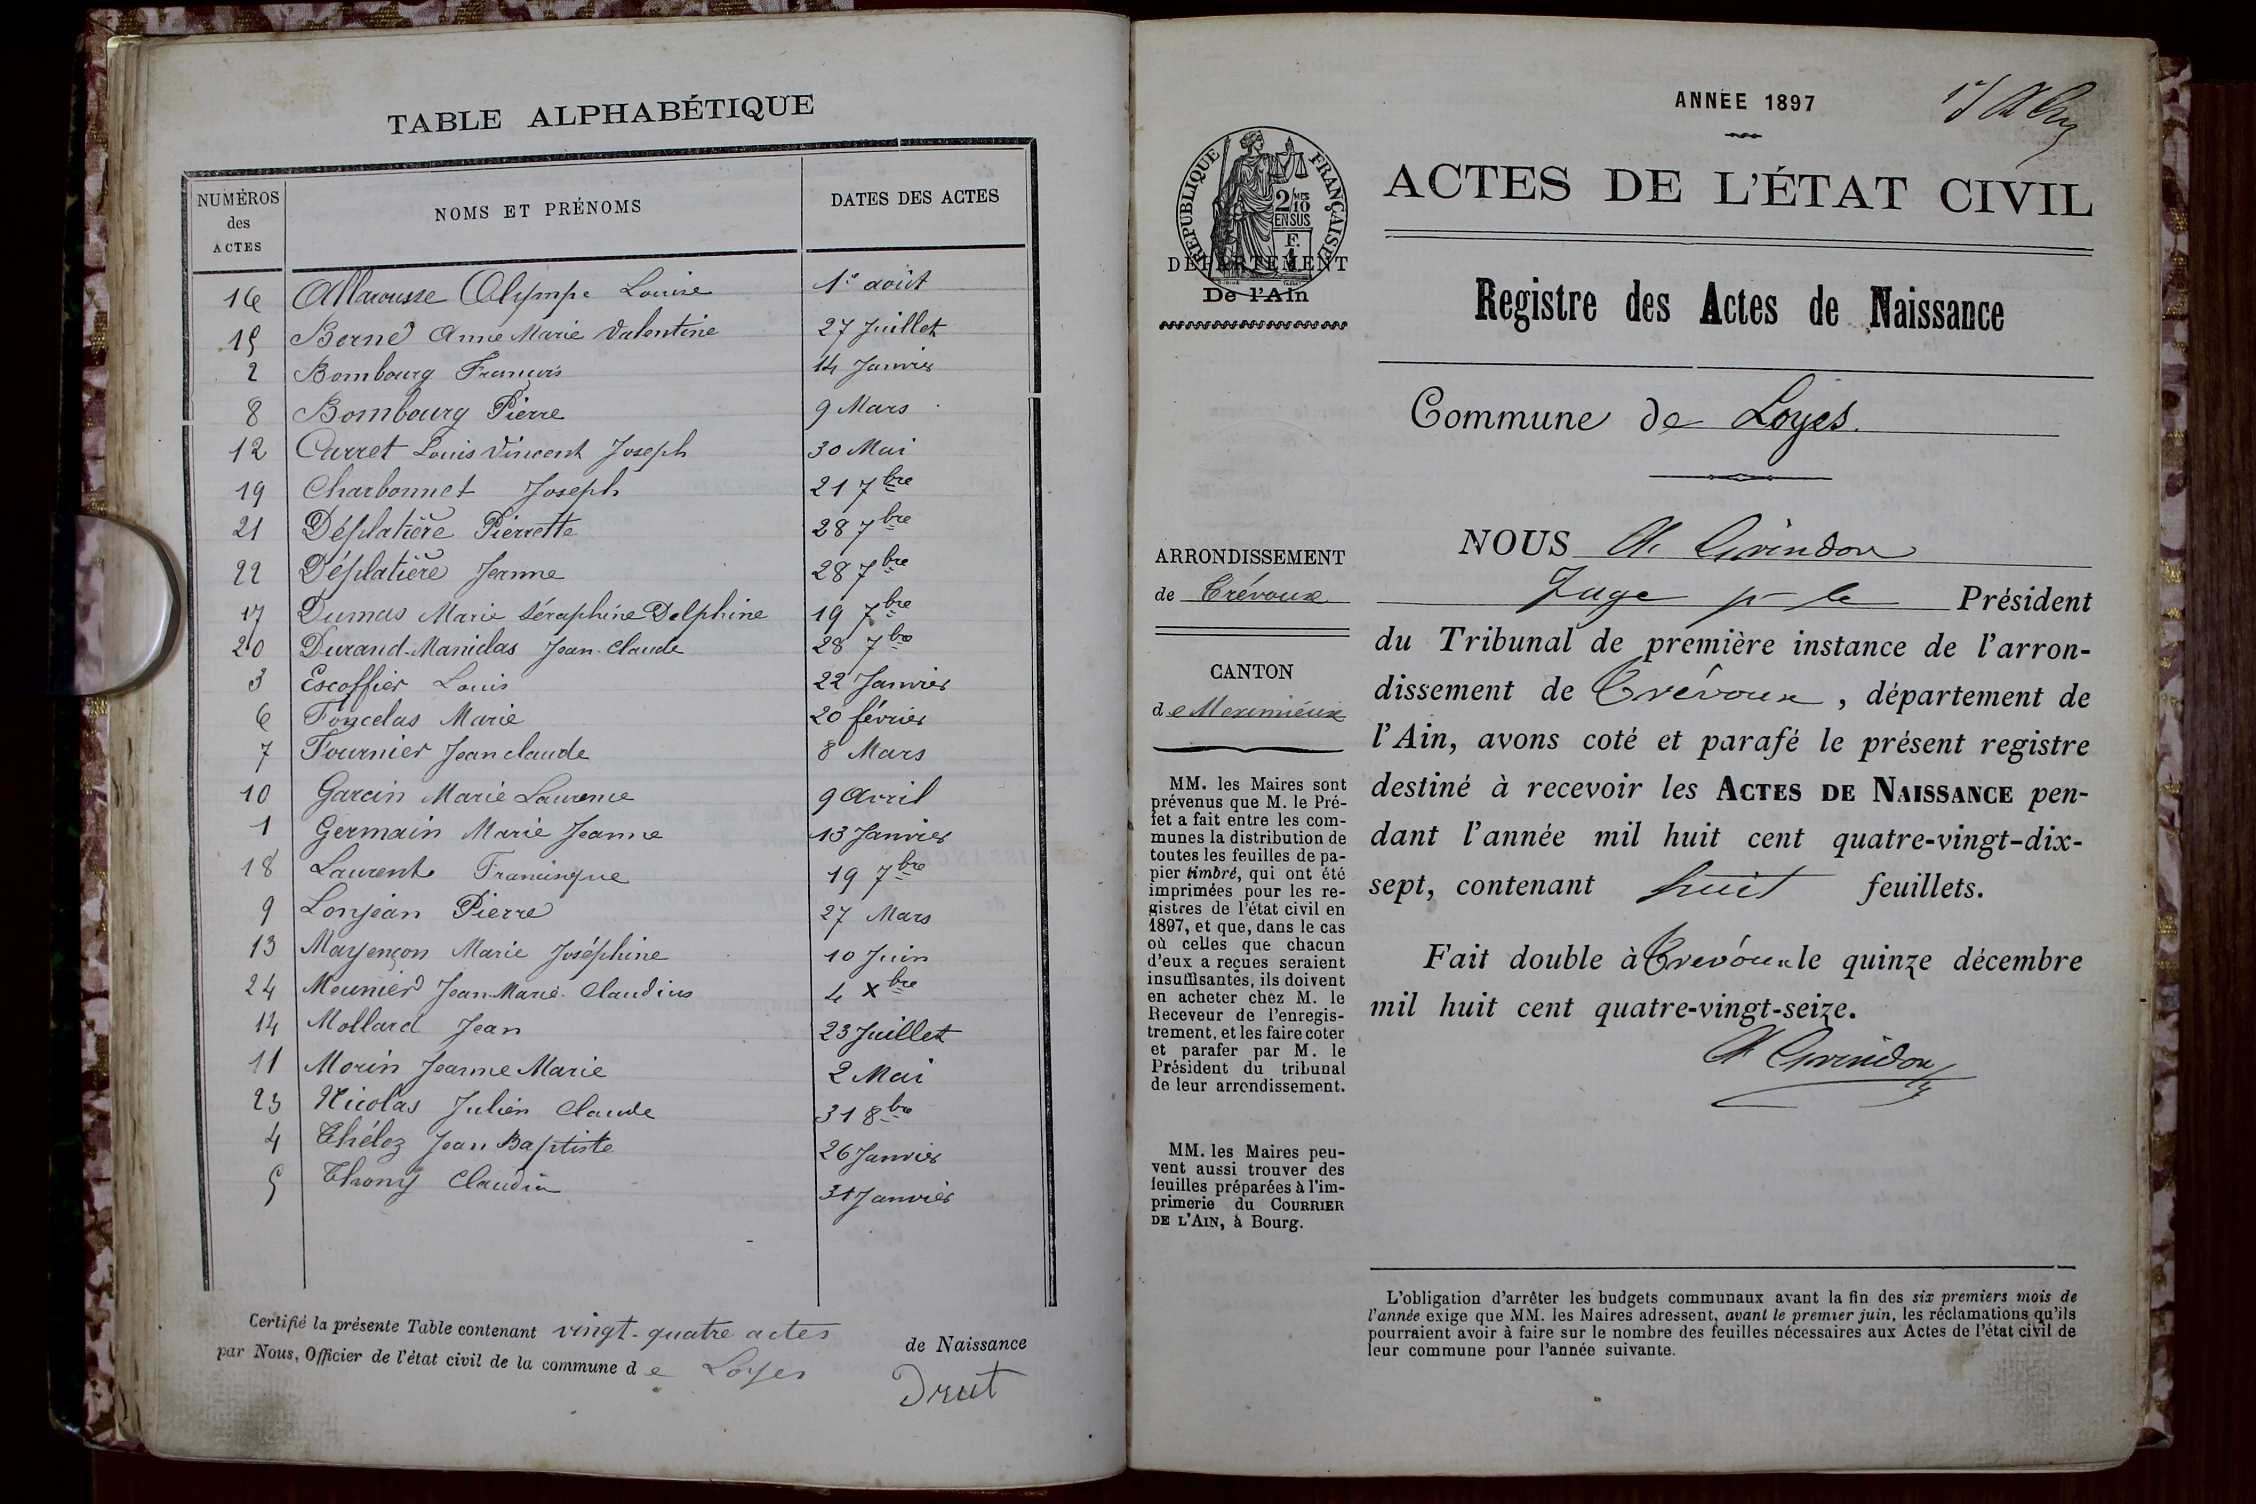 TABLE ALPHABÉTIQUE
NUMÉROS des ACTES NOMS ET PRÉNOMS DATES DES ACTES
16 Allarousse Olympe Louise 1er août
15 Berne Anne Marie Valentine 27 Juillet
2 Bombourg François 14 Janvier
8 Bombourg Pierre 9 Mars
12 Curret Louis Vincent Joseph 30 Mai
19 Charbonnet Joseph 21 7bre
21 Déplatière Pierrette 28 7bre
22 Déplatière Jeanne 28 7bre
17 Dumas Marie Séraphine Delphine 19 7bre
20 Durand-Maniclas Jean-Claude 28 7bre
3 Escoffier Louis 22 Janvier
6 Foncelas Marie 20 février
7 Fournier Jean claude 8 Mars
10 Garcin Marie Laurence 9 Avril
1 Germain Marie Jeanne 13 Janvier
18 Laurent Francisque 19 7bre
9 Lonjean Pierre 27 Mars
13 Mayençon Marie Joséphine 10 Juin
24 Meunier Jean-Marie-Claudius 4 Xbre
14 Mollard Jean 23 Juillet
11 Morin Jeanne Marie 2 Mai
23 Nicolas Julien Claude 31 8bre
4 Théloz Jean Baptiste 26 Janvier
5 Thony Claudia 31 Janvier
Certifié la présente Table contenant vingt-quatre actes de Naissance
par Nous, Officier de l'état civil de la commune de Loyes
Drut
ANNÉE 1897
RÉPUBLIQUE FRANÇAISE
2/10 MES
EN SUS
F.
1
DÉPARTEMENT
De l'Ain
ACTES DE L'ÉTAT CIVIL
Registre des Actes de Naissance
Commune de Loyes.
ARRONDISSEMENT
de Trévoux
CANTON
de Meximieux
MM. les Maires sont
prévenus que M. le Pré-
fet a fait entre les com-
munes la distribution de
toutes les feuilles de pa-
pier timbré, qui ont été
imprimées pour les re-
gistres de l'état civil en
1897, et que, dans le cas
où celles que chacun
d'eux a reçues seraient
insuffisantes, ils doivent
en acheter chez M. le
Receveur de l'enregis-
trement, et les faire coter
et parafer par M. le
Président du tribunal
de leur arrondissement.
MM. les Maires peu-
vent aussi trouver des
feuilles préparées à l'im-
primerie du COURRIER
DE L'AIN, à Bourg.
NOUS A. Grindon
Juge pr le Président
du Tribunal de première instance de l'arron-
dissement de Trévoux, département de
l'Ain, avons coté et parafé le présent registre
destiné à recevoir les ACTES DE NAISSANCE pen-
dant l'année mil huit cent quatre-vingt-dix-
sept, contenant huit feuillets.
Fait double à Trévoux le quinze décembre
mil huit cent quatre-vingt-seize.
A Grindon
L'obligation d'arrêter les budgets communaux avant la fin des six premiers mois de
l'année exige que MM. les Maires adressent, avant le premier juin, les réclamations qu'ils
pourraient avoir à faire sur le nombre des feuilles nécessaires aux Actes de l'état civil de
leur commune pour l'année suivante.